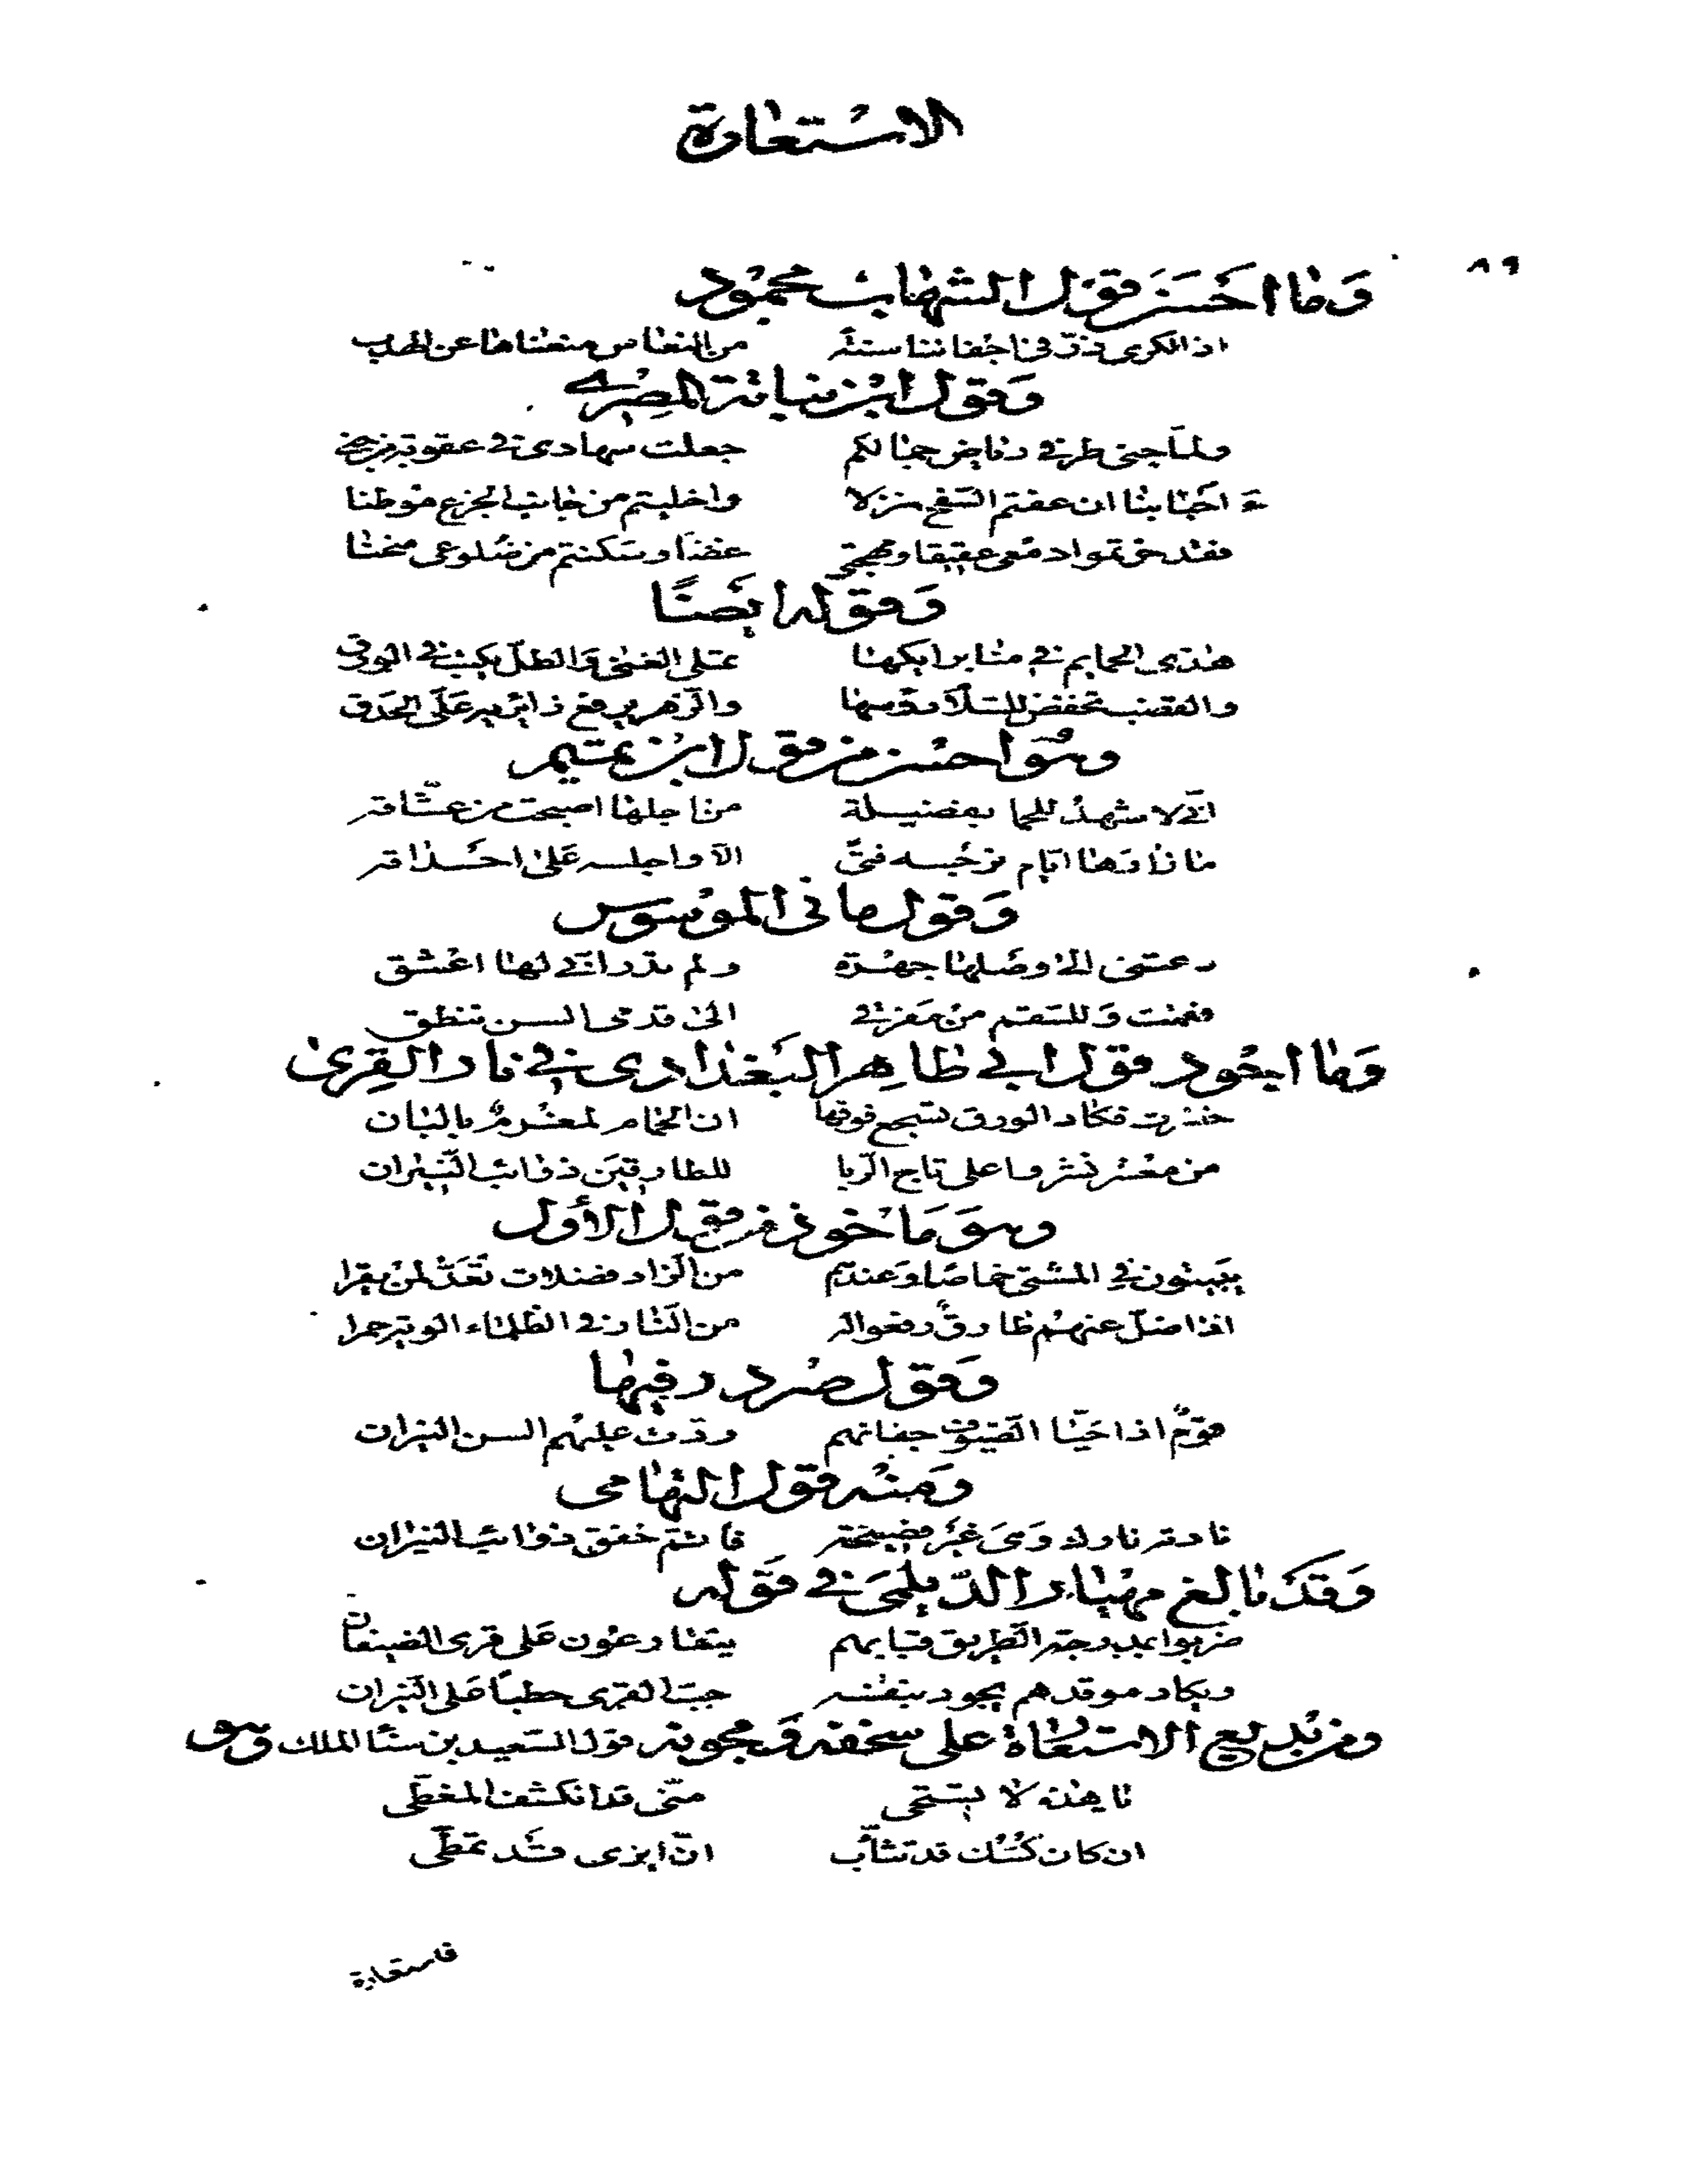 الاستعارة
٨٩
وما احسن قول الشهاب محمود
اذا الكرى ذرّ في اجفاننا سنة من النعاس منعناها عن الهدب
وقول ابن نباتة المصري
ولما جنى طرفي رياض جمالكم جعلت سهادى في عقوبة من جنى
ءَ احبابنا ان عفتم السفح منزلا واخليتم من جانب الجزع موطنا
فقد حزتموا دمعى عقيقا ومهجتى غضا وسكنتم من ضلوعى منحنا
وقوله ايضًا
هذى الحمايم في منابر ايكها تملى الغنى والطلّ يكتب في الورق
والقضب تخفض للسلام رؤسها والزهر يرفع زائريه على الحدق
وهو احسن من قول ابن تميم
انّي لاشهد للحما بفضيلة من اجلها اصبحت من عشّاقه
ما زارها ايام نرجسه فتىً الاّ واجلسه على احداقه
وقول مانى الموسوس
دعتنى الى وصلها جهرة ولم تدر انّي لها اعشق
فقمت وللسقم من مفرقي الى قدمى السن تنطق
وما اجود قول ابي طاهر البغدادى في نار القرى
خطرت فكاد الورق تسجع فوقها ان الحمام لمغرم بالبان
من معشر نشروا على تاج الربا للطارقين ذوائب النيران
وهو مأخوذ من قول الأول
يبيتون في المشتى خماصا وعندهم من الزاد فضلات تعدّ لمن يقرا
اذا ضلّ عنهم طارقٌ رفعوا له من النار في الظلماء الوية حمرا
وقول صردر فيها
قومٌ اذا حيّا الضيوف جفانهم ردّت عليهم السن النيران
ومنه قول التهامى
نادته نارك وهى غير فصيحة فاشتم خفق ذوائب النيران
وقد بالغ مهيار الديلمى في قوله
ضربوا بمدرجة الطريق قبابهم يتقارعون على قرى الضيفان
ويكاد موقدهم يجود بنفسه حبّ القرى حطباً على النيران
ومن بديع الاستعاة على سخفه ومجونه قول السعيد بن سنا الملك وهو
يا هذه لا تستحى منّى قد انكشف المغطّى
ان كان كسّك قد تثآب انّ ايرى قد تمطّى
فاستعارة